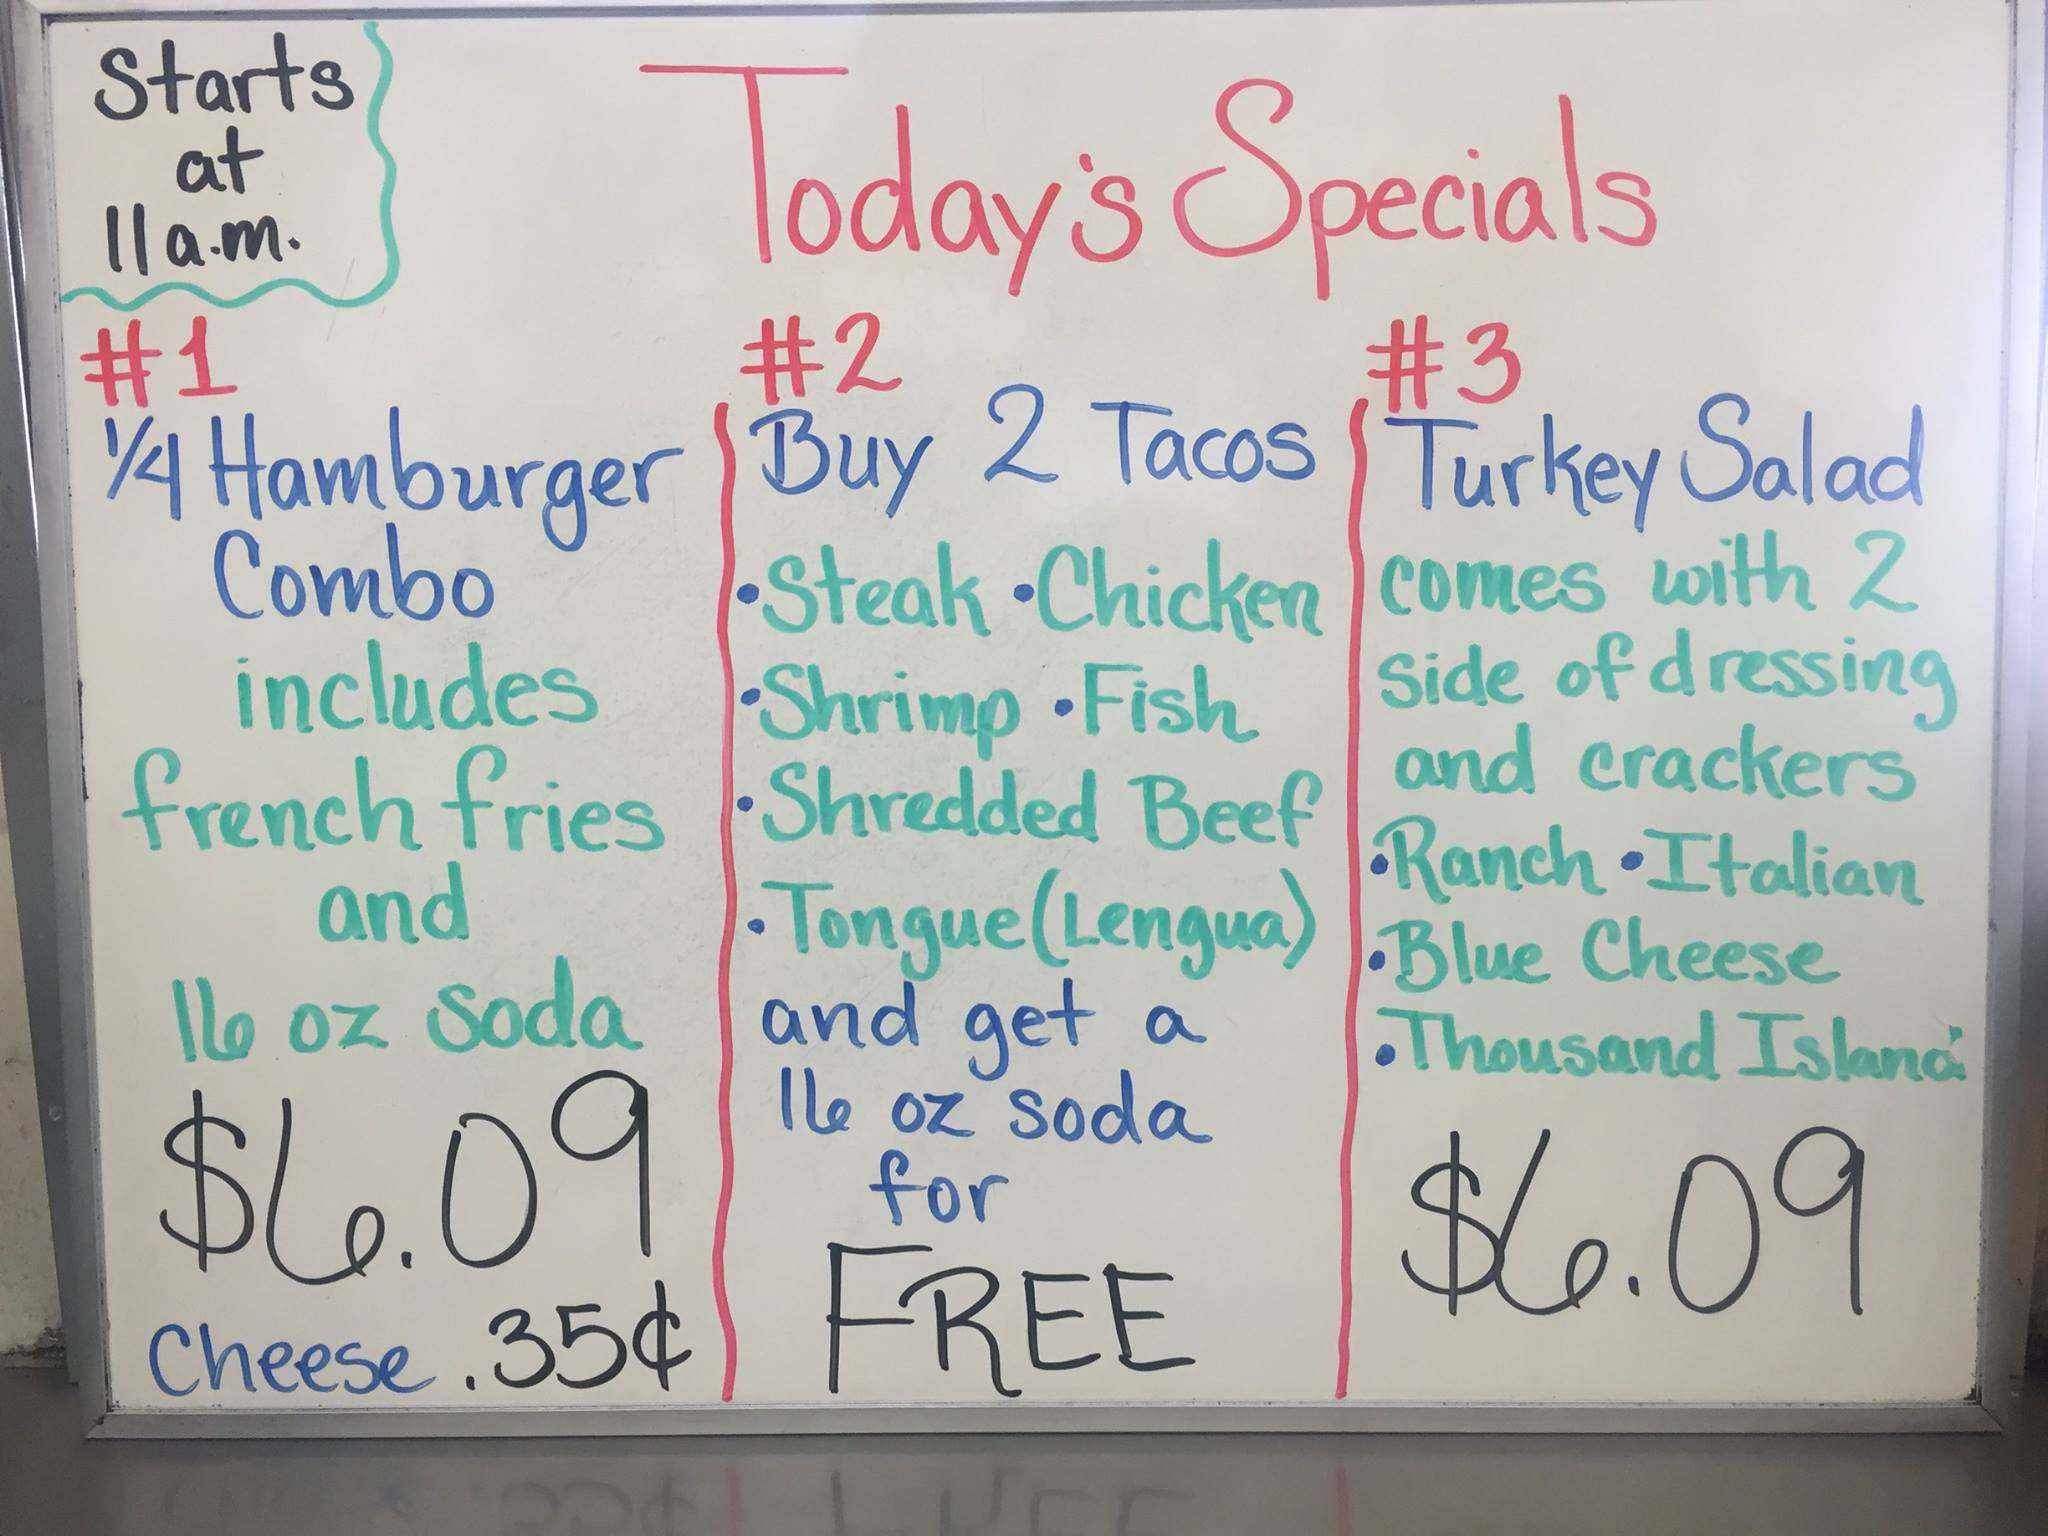 Starts
at
11 a.m.
Today's Specials
#1
1/4 Hamburger
Combo
includes
french fries
and
16 oz soda
$6.09
Cheese .35¢
#2
Buy 2 Tacos
•Steak •Chicken
•Shrimp •Fish
•Shredded Beef
•Tongue (Lengua)
and get a
16 oz soda
for
FREE
#3
Turkey Salad
comes with 2
side of dressing
and crackers
•Ranch •Italian
•Blue Cheese
•Thousand Island
$6.09